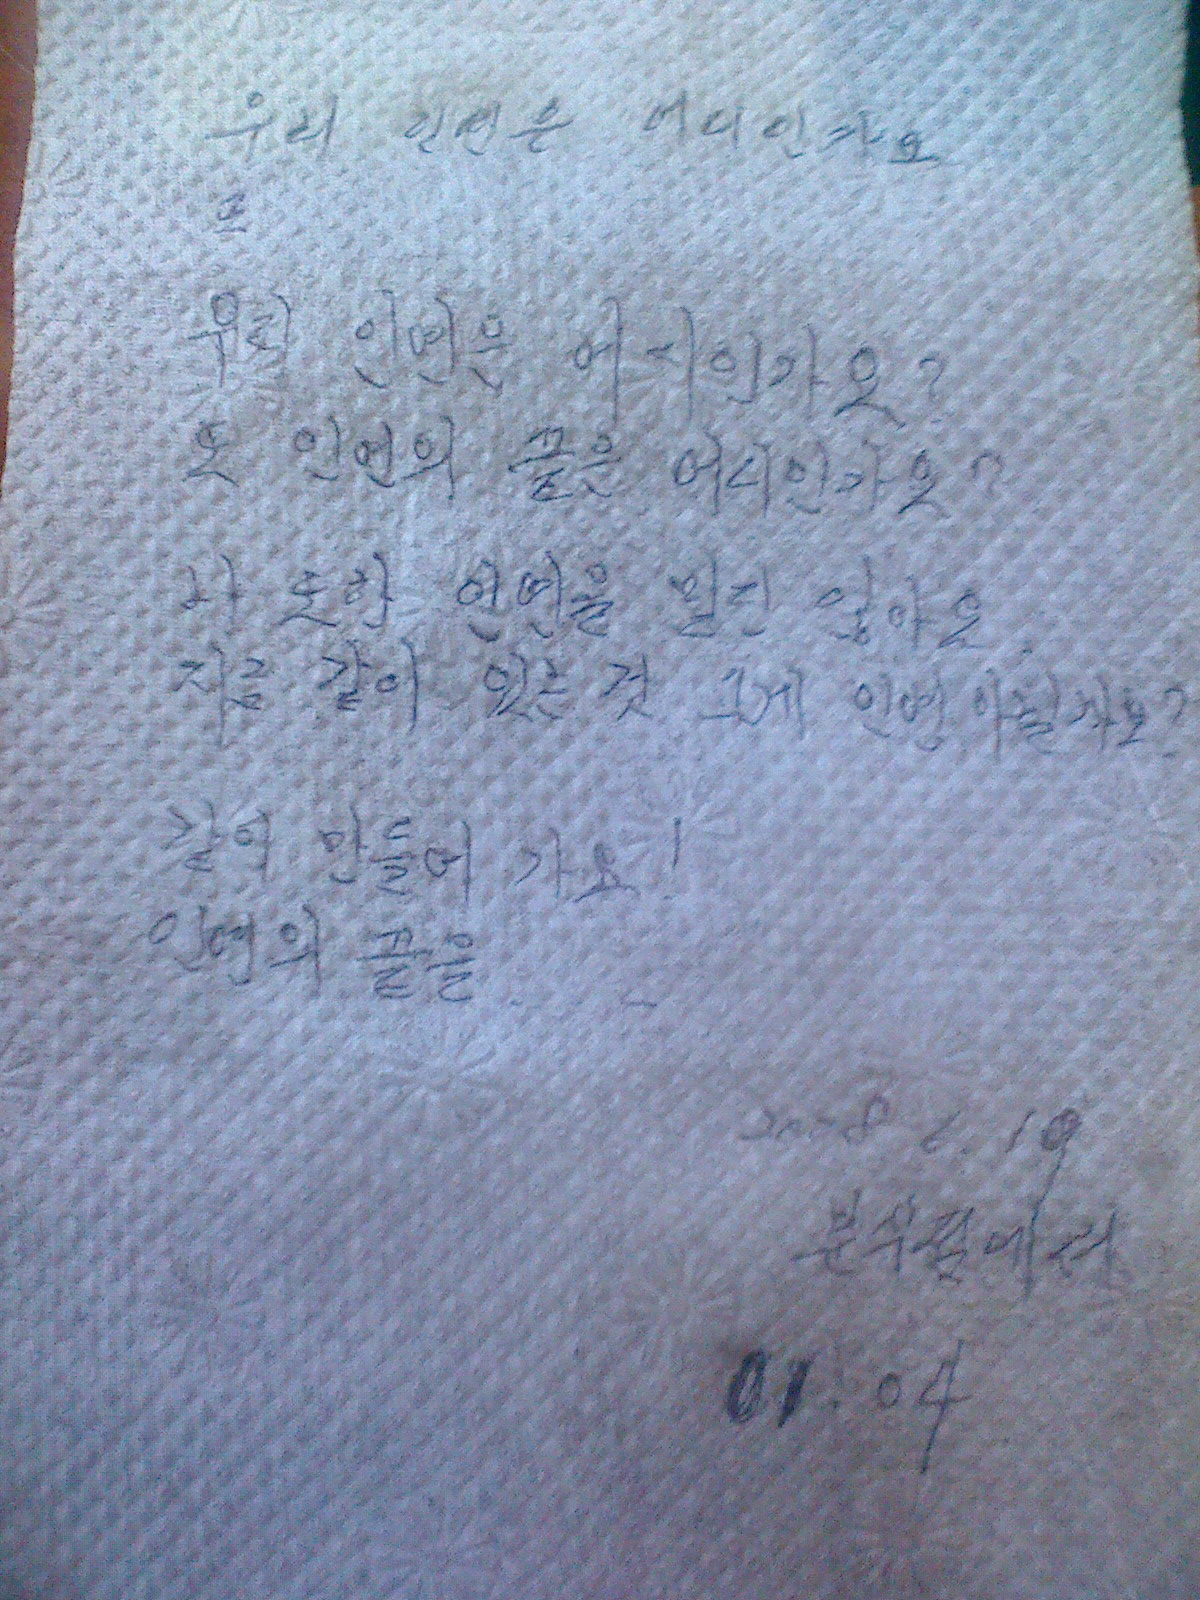 우리 인연은 어디인가요
또
우리 인연은 어디인가요?
또 인연의 끝은 어디인가요?
나 또한 인연을 믿진 않아요.
지금 같이 있는 것 그게 인연 아닐까요?
같이 만들어 가요!
인연의 끝을
2008 6. 19
분식점에서
01. 04